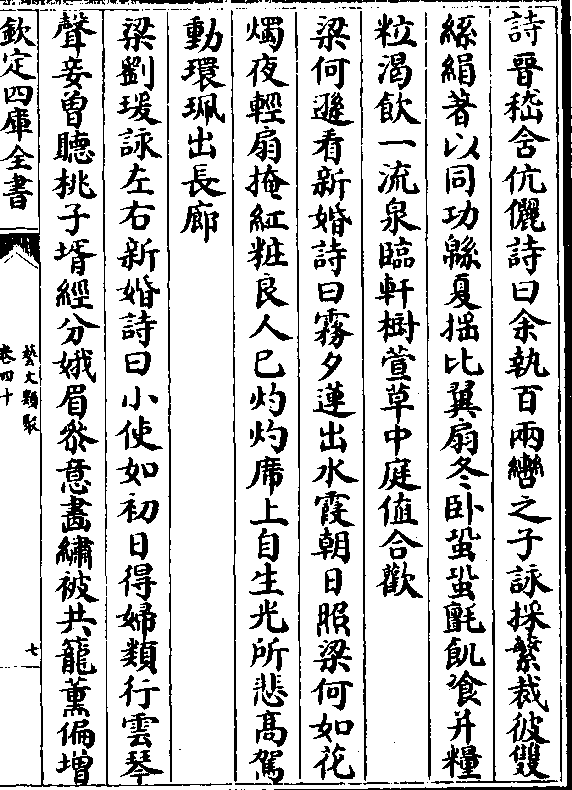 詩晉嵇含伉儷詩曰余執百兩轡之子詠採蘩裁彼雙
絲絹著以同功緜夏揺比翼扇冬卧蛩蛩氈飢飡并糧
粒渴飲一流泉臨軒樹萱草中庭值合歡
梁何遜看新婚詩曰霧夕蓮出水霞朝日照梁何如花
燭夜輕扇掩紅粧良人已灼灼席上自生光所悲髙駕
動環珮出長廊
梁劉瑗詠左右新婚詩曰小使如初日得婦類行雲琴
聲妾曽聽桃子壻經分娥眉叅意畫繡被共籠薫偏増
欽定四庫全書
藝文類聚
卷四十
七